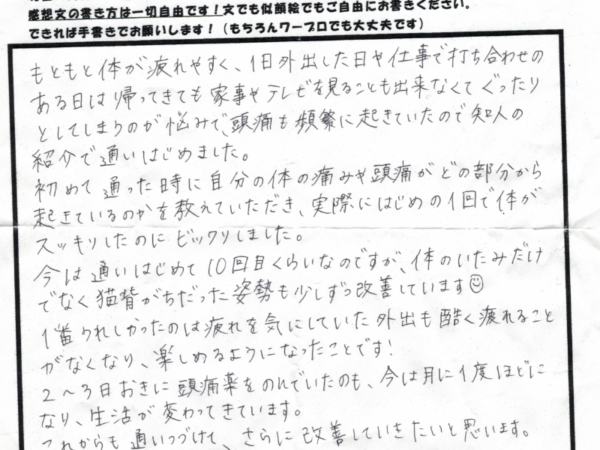 感想文の書き方は一切自由です！文でも似顔絵でもご自由にお書きください。
できれば手書きでお願いします！（もちろんワープロでも大丈夫です）
もともと体が疲れやすく、1日外出した日や仕事で打ち合わせの
ある日は帰ってきても家事やテレビを見ることも出来なくてぐったり
としてしまうのが悩みで頭痛も頻繁に起きていたので知人の
紹介で通いはじめました。
初めて通った時に自分の体の痛みや頭痛がどの部分から
起きているのかを教えていただき、実際にはじめの1回で体が
スッキリしたのにビックリしました。
今は通いはじめて10回目くらいなのですが、体のいたみだけ
でなく猫背がちだった姿勢も少しずつ改善しています☺
1番うれしかったのは疲れを気にしていた外出も酷く疲れること
がなくなり、楽しめるようになったことです！
2～3日おきに頭痛薬をのんでいたのも、今は月に1度ほどに
なり、生活が変わってきています。
これからも通いつづけて、さらに改善していきたいと思います。